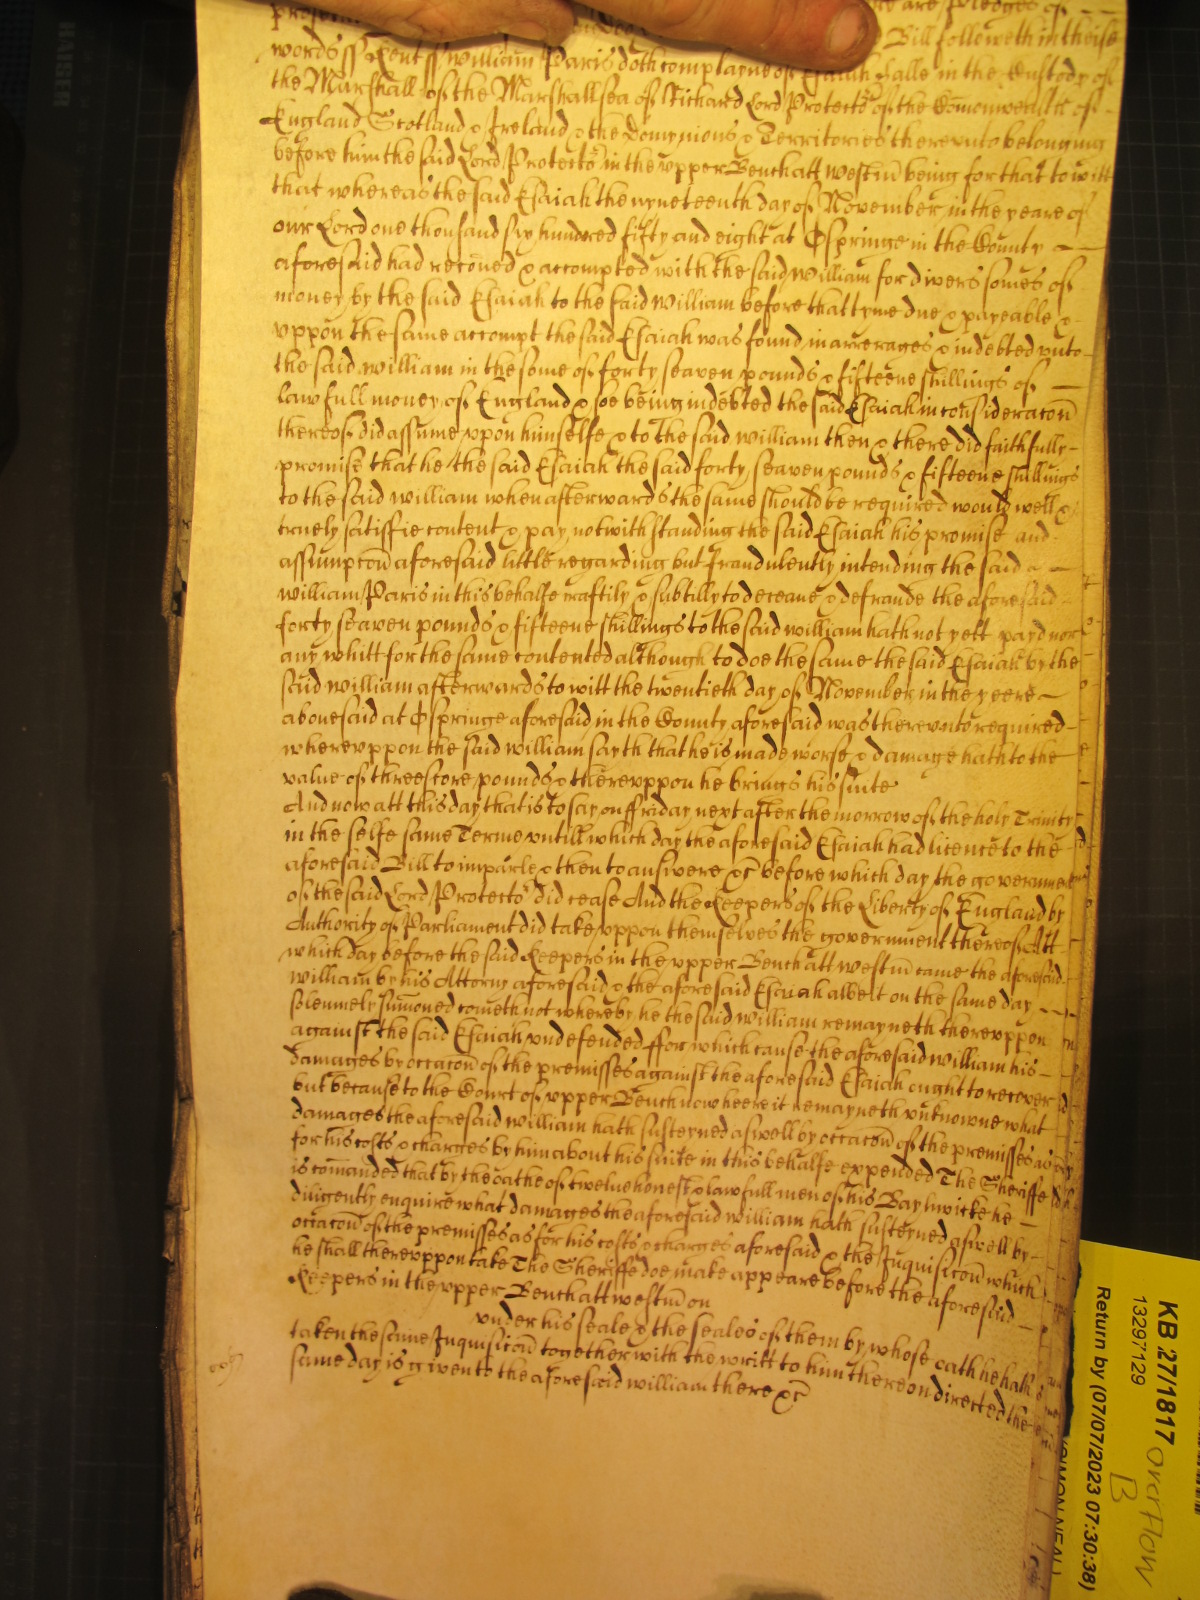 are Pledges of
Bill followeth in theise
words ss Kent ss William Paris doth complayne of Esaiah Halle in the Custody of
the Marshall of the Marshallsea of Richard Lord Protector of the Comonwealth of
England Scotland & Ireland & the Dominions & Territories therevnto belonging
before him the said Lord Protector in the vpper Bench att Westm being for that to witt
that whereas the said Esaiah the nyneteenth day of November in the yeare of
our Lord one thousand six hundred fifty and eight at Ospringe in the County
aforesaid had reconed & accompted with the said William for divers somes of
money by the said Esaiah to the said William before that tyme due & payeable &
vppon the same accompt the said Esaiah was found in arrerages & indebted vnto
the said William in the some of forty seaven pounds & fifteene shillings of
lawfull money of England & soe being indebted the said Esaiah in consideracon
thereof did assume vpon himselfe & to the said William then & there did faithfully
promise that he the said Esaiah the said forty seaven pounds & fifteene shillings
to the said William when afterwards the same should be required would well &
truely satisfie content & pay notwithstanding the said Esaiah his promise and
assumpcon aforesaid little regarding but fraudulently intending the said
William Paris in this behalfe craftily & subtilly to deceave & defraude the aforesaid
forty seaven pounds & fifteene shillings to the said William hath not yett payd nor
any whitt for the same contented although to doe the same the said Esaiah by the
said William afterwards to witt the twentieth day of November in the yeere
abovesaid at Ospringe aforesaid in the County aforesaid was therevnto required
wherevppon the said William sayth that he is made worse & damage hath to the
value of threescore pounds & therevppon he brings his suite
And now att this day that is to say on ffriday next after the morrow of the holy Trinity
in the selfe same Terme vntill which day the aforesaid Esaiah had licence to the
aforesaid Bill to imparle & then to answere &c before which day the governmet
of the said Lord Protector did cease And the Keepers of the Liberty of England by
Authority of Parliament did take vppon themselves the government thereof Att
which day before the said Keepers in the vpper Bench att Westm came the aforesaid
William by his Attorny aforesaid & the aforesaid Esaiah albeit on the same day
solemnely sumoned cometh not whereby he the said William remayneth therevppon
against the said Esaiah vndefended ffor which cause the aforesaid William his
damages by occacon of the premisses against the aforesaid Esaiah ought to recover
but because to the Court of vpper Bench now heere it remayneth vnknowne what
damages the aforesaid William hath susteyned aswell by occacon of the premisses as
for his costs & charges by him about his suite in this behalfe expended The Sheriffe
is comanded that by the oathe of twelve honest & lawfull men of his Baylywicke he
diligently enquire what damages the aforesaid William hath susteyned aswell by
occacon of the premisses as for his costs & charges aforesaid & the Inquisicon which
he shall therevppon take The Sheriffe doe make appeare before the aforesaid
Keepers in the vpper Bench att Westm on
vnder his seale & the seales of them by whose oath he hath
taken the same Inquisicon together with the writt to him thereon directed the
same day is given to the aforesaid William there &c
KB 27/1817 overflow
13297129 B
Return by (07/07/2023 07:30:38)